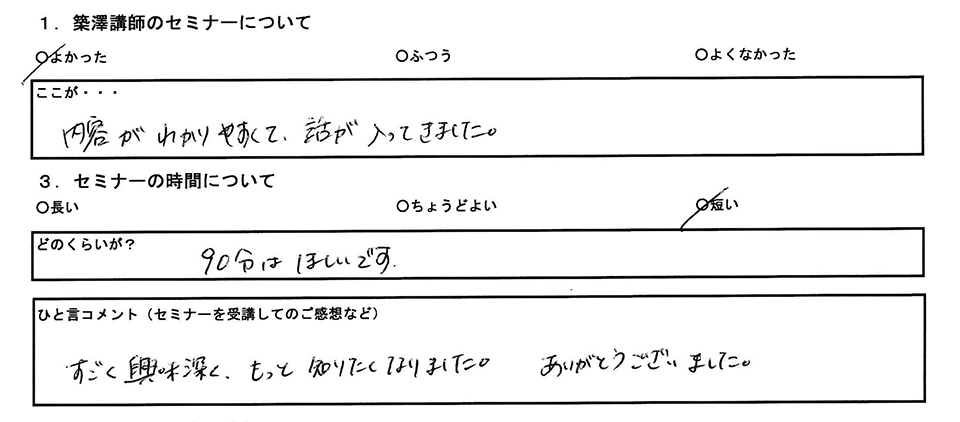 １．築澤講師のセミナーについて
○よかった ○ふつう ○よくなかった
ここが・・・
内容がわかりやすくて、話が入ってきました。
３．セミナーの時間について
○長い ○ちょうどよい ○短い
どのくらいが？
90分はほしいです.
ひと言コメント（セミナーを受講してのご感想など）
すごく興味深く、もっと知りたくなりました。 ありがとうございました。